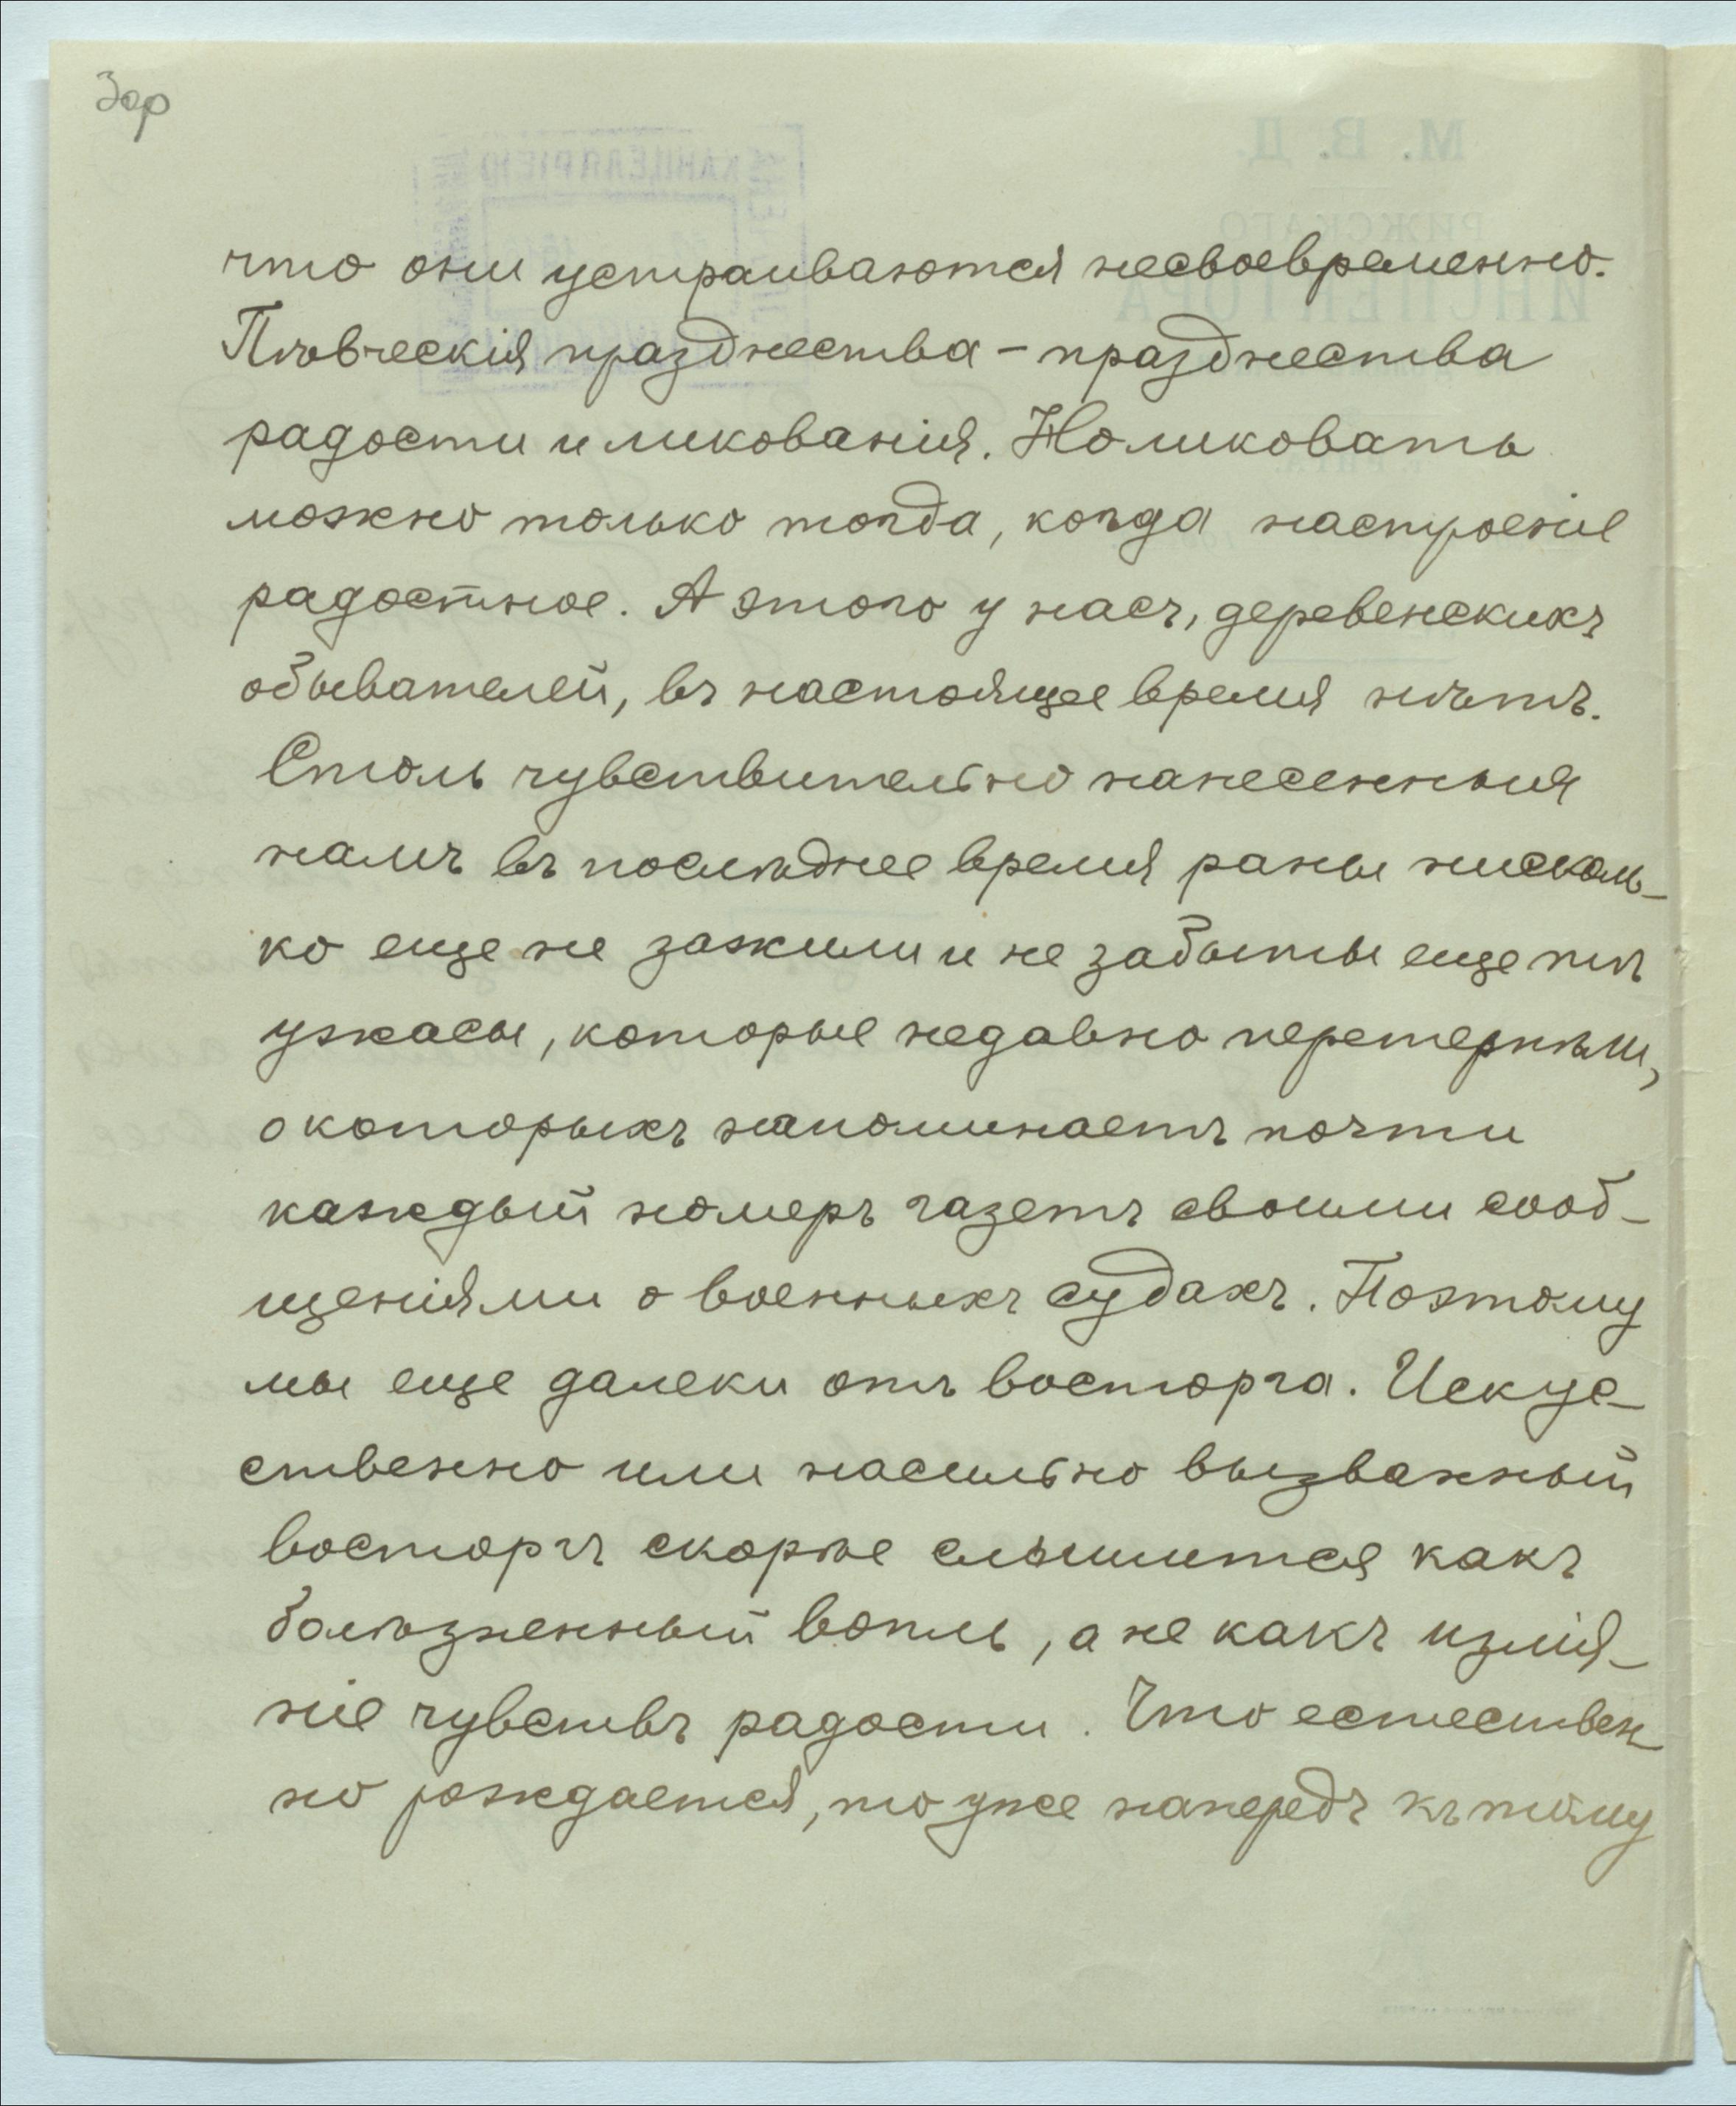 3ор
что они устраиваются несвоевременно.
Пѣвческія празднества – празднества
радости и ликованія. Но ликовать
можно только тогда, когда настроеніе
радостное. А этого у насъ, деревенскихъ
обывателей, въ настоящее время нѣтъ.
Столь чувствительно нанесенныя
намъ въ послѣднее время раны нисколь-
ко еще не зажили и не забыты еще тѣ
ужасы, которые недавно перетерпѣли,
о которыхъ напоминаетъ почти
каждый номеръ газетъ своими сооб-
щеніями о военныхъ судахъ. Поэтому
мы еще далеки отъ восторга. Искус-
ственно или насильно вызванный
восторгъ скорѣе слышится какъ
болѣзненный вопль, а не какъ излія-
ніе чувствъ радости. Что естествен
но рождается, то уже напередъ къ тому
М. В. Д.
РИЖСКАГО
ИНСПЕКТОРА
КАНЦЕЛЯРІЕЮ